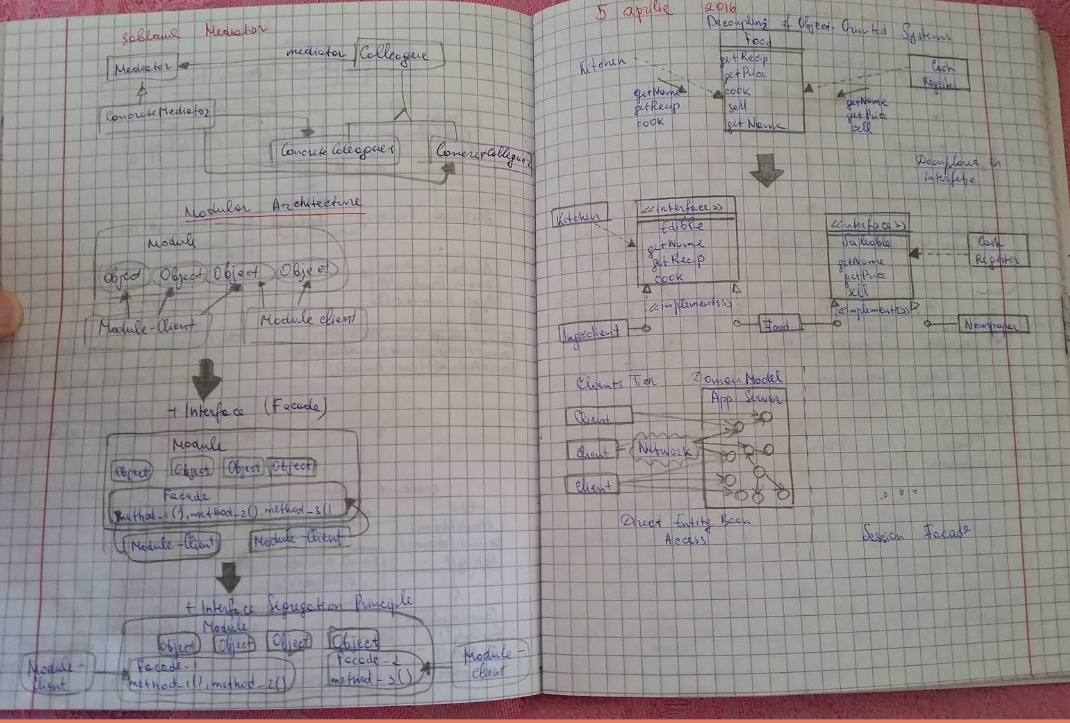 șablonul Mediator
mediator
Colleague
Mediator
ConcreteMediator
ConcreteColleague1
ConcreteColleague2
Modular Architecture
Module
Object Object Object Object
Module-Client
Module client
+ Interface (Facade)
Module
Object Object Object Object
Facade
method_1(), method_2() method_3()
Module-Client Module-Client
+ Interface Segregation Principle
Module
Object Object Object Object
Module-Client
Facade-1
method_1(), method_2()
Facade-2
method_3()
Module-Client
5 aprilie 2016
Decoupling of Object-Oriented Systems
Food
getRecip
getPrice
cook
sell
getName
Kitchen
getName
getRecip
cook
Cash Register
getName
getPrice
sell
Kitchen
<<interface>>
Edible
getName
getRecip
cook
<<interface>>
Saleable
getName
getPrice
sell
Cash Register
<<implements>>
<<implements>>
Ingredient
Food
Newspaper
Clients Tier
Domain Model
App Server
Client
Client
Network
Client
Direct Entity Bean
Access
Session Facade